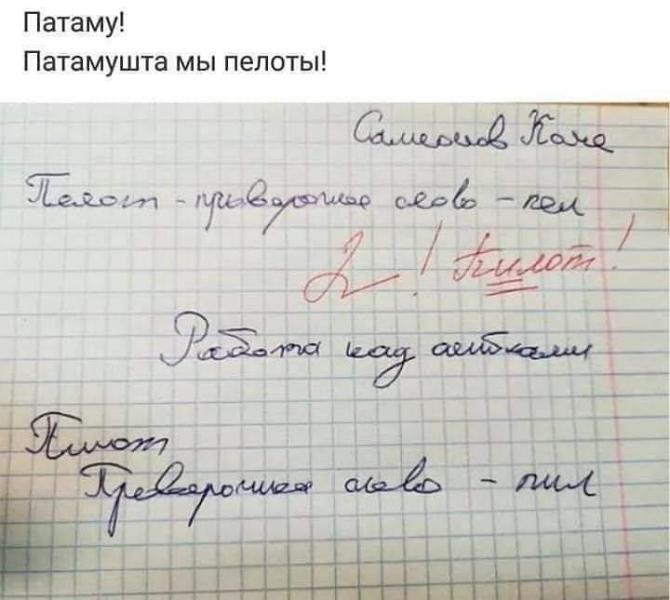 Патаму!
Патамушта мы пелоты!
Самсонов Коля
Пелот - приверочное слово - пел
2! Пилот!
Работа над ашибками
Пилот
Преверочнае слово - пил